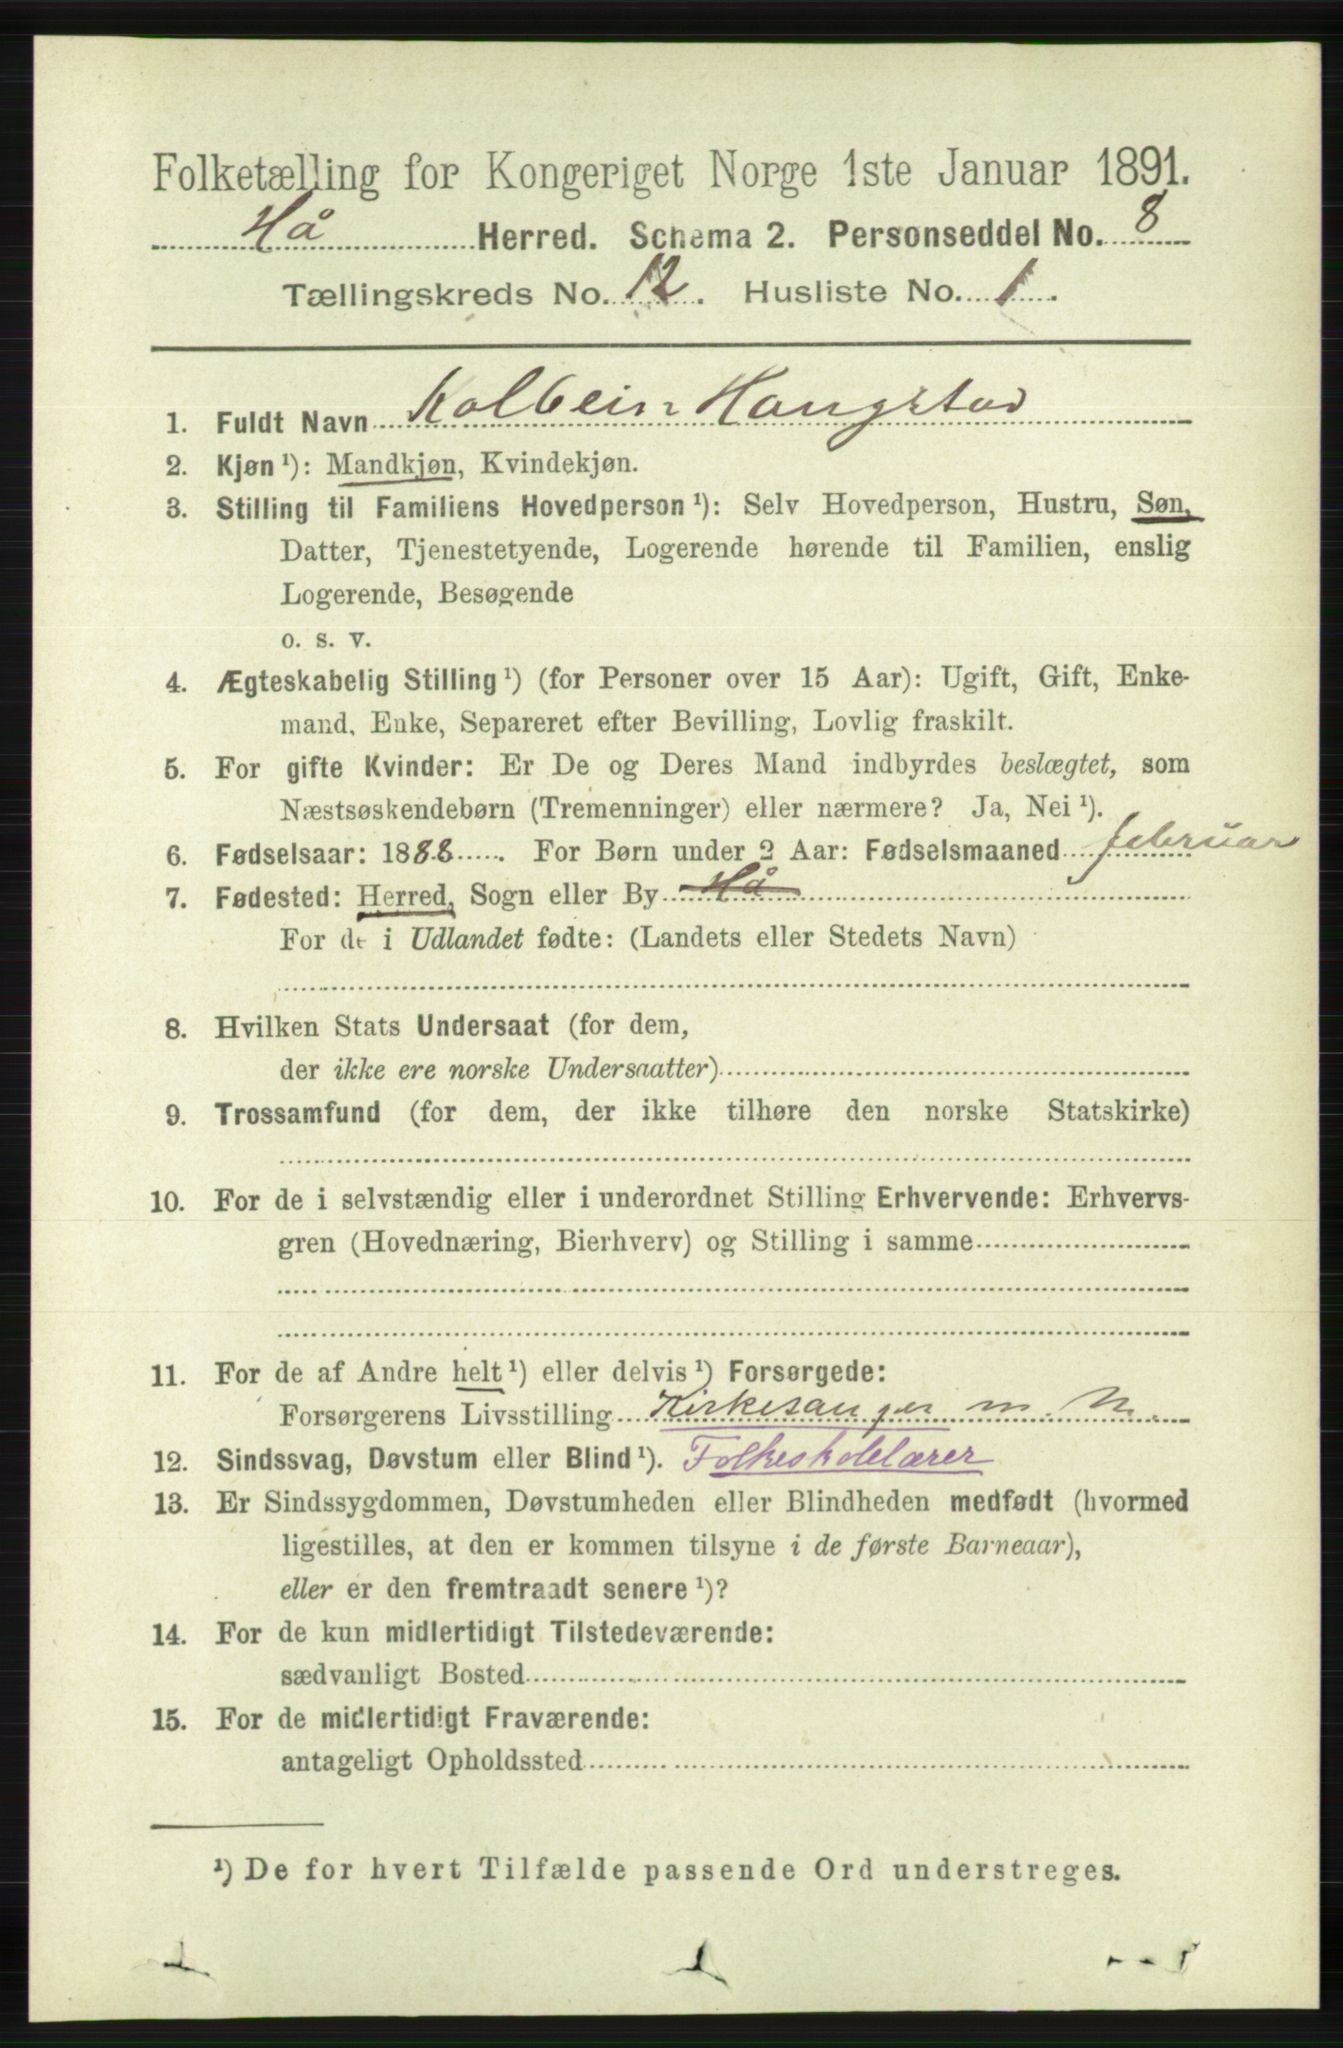 Folketælling for Kongeriget Norge 1ste Januar 1891.
Hå Herred. Schema 2. Personseddel No. 8
Tællingskreds No. 12. Husliste No. 1.
1. Fuldt Navn Kolbein Haugstad
2. Kjøn ¹): Mandkjøn, Kvindekjøn.
3. Stilling til Familiens Hovedperson ¹): Selv Hovedperson, Hustru, Søn,
Datter, Tjenestetyende, Logerende hørende til Familien, enslig
Logerende, Besøgende
o. s. v.
4. Ægteskabelig Stilling ¹) (for Personer over 15 Aar): Ugift, Gift, Enke-
mand, Enke, Separeret efter Bevilling, Lovlig fraskilt.
5. For gifte Kvinder: Er De og Deres Mand indbyrdes beslægtet, som
Næstsøskendebørn (Tremenninger) eller nærmere? Ja, Nei ¹).
6. Fødselsaar: 1888. For Børn under 2 Aar: Fødselsmaaned februar
7. Fødested: Herred, Sogn eller By Hå
For de i Udlandet fødte: (Landets eller Stedets Navn)
8. Hvilken Stats Undersaat (for dem,
der ikke ere norske Undersaatter)
9. Trossamfund (for dem, der ikke tilhøre den norske Statskirke)
10. For de i selvstændig eller i underordnet Stilling Erhvervende: Erhvervs-
gren (Hovednæring, Bierhverv) og Stilling i samme
11. For de af Andre helt ¹) eller delvis ¹) Forsørgede:
Forsørgerens Livsstilling Kirkesanger m. M.
12. Sindssvag, Døvstum eller Blind ¹). Folkeskolelærer
13. Er Sindssygdommen, Døvstumheden eller Blindheden medfødt (hvormed
ligestilles, at den er kommen tilsyne i de første Barneaar),
eller er den fremtraadt senere ¹)?
14. For de kun midlertidigt Tilstedeværende:
sædvanligt Bosted
15. For de midlertidigt Fraværende:
antageligt Opholdssted
¹) De for hvert Tilfælde passende Ord understreges.